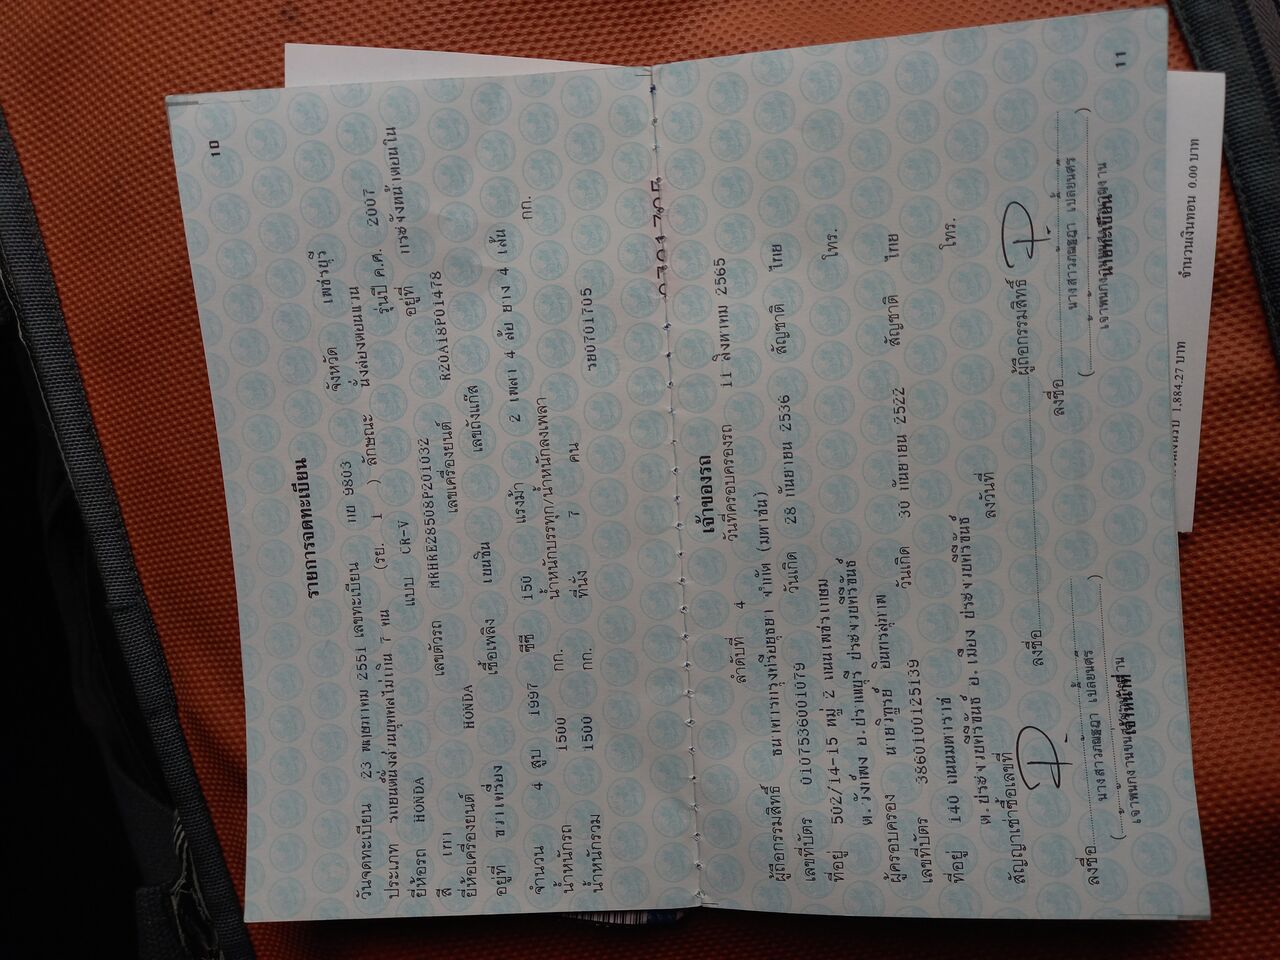 10
รายการจดทะเบียน
วันจดทะเบียน 23 พฤษภาคม 2551 เลขทะเบียน กย 9803 จังหวัด เพชรบุรี
ประเภท รถยนต์นั่งส่วนบุคคลไม่เกิน 7 คน (รย. 1 ) ลักษณะ นั่งสองตอนแวน
ยี่ห้อรถ HONDA แบบ CR-V รุ่นปี ค.ศ. 2007
สี เทา เลขตัวรถ MRHRE28508P201032 อยู่ที่
ยี่ห้อเครื่องยนต์ HONDA เลขเครื่องยนต์ R20A18P01478
อยู่ที่ เชื้อเพลิง เบนซิน เลขถังแก๊ส
จำนวน 4 สูบ 1997 ซีซี 150 แรงม้า 2 เพลา 4 ล้อ ยาง 4 เส้น
น้ำหนักรถ 1500 กก. น้ำหนักบรรทุก/น้ำหนักลงเพลา กก.
น้ำหนักรวม 1500 กก. ที่นั่ง 7 คน รย0701705
เจ้าของรถ
ลำดับที่ 4 วันที่ครอบครองรถ 11 สิงหาคม 2565
ผู้ถือกรรมสิทธิ์ ธนาคารกรุงศรีอยุธยา จำกัด (มหาชน)
เลขที่บัตร 0107536001079 วันเกิด 28 กันยายน 2536 สัญชาติ ไทย
ที่อยู่ 502/14-15 หมู่ 2 ถนนเพชรเกษม
ต.วังก์พง อ.ปราณบุรี ประจวบคีรีขันธ์ โทร.
ผู้ครอบครอง นายวิฑูรย์ อินทรสุภาพ
เลขที่บัตร 3860100125139 วันเกิด 30 กันยายน 2522 สัญชาติ ไทย
ที่อยู่ 140 ถนนมหาราช
ต.ประจวบคีรีขันธ์ อ.เมือง ประจวบคีรีขันธ์ โทร.
สัญญาเช่าซื้อเลขที่ ลงวันที่
ลงชื่อ ผู้ถือกรรมสิทธิ์
ลงชื่อ ลงชื่อ
11
จำนวนเงินทอน 0.00 บาท
1,884.27 บาท